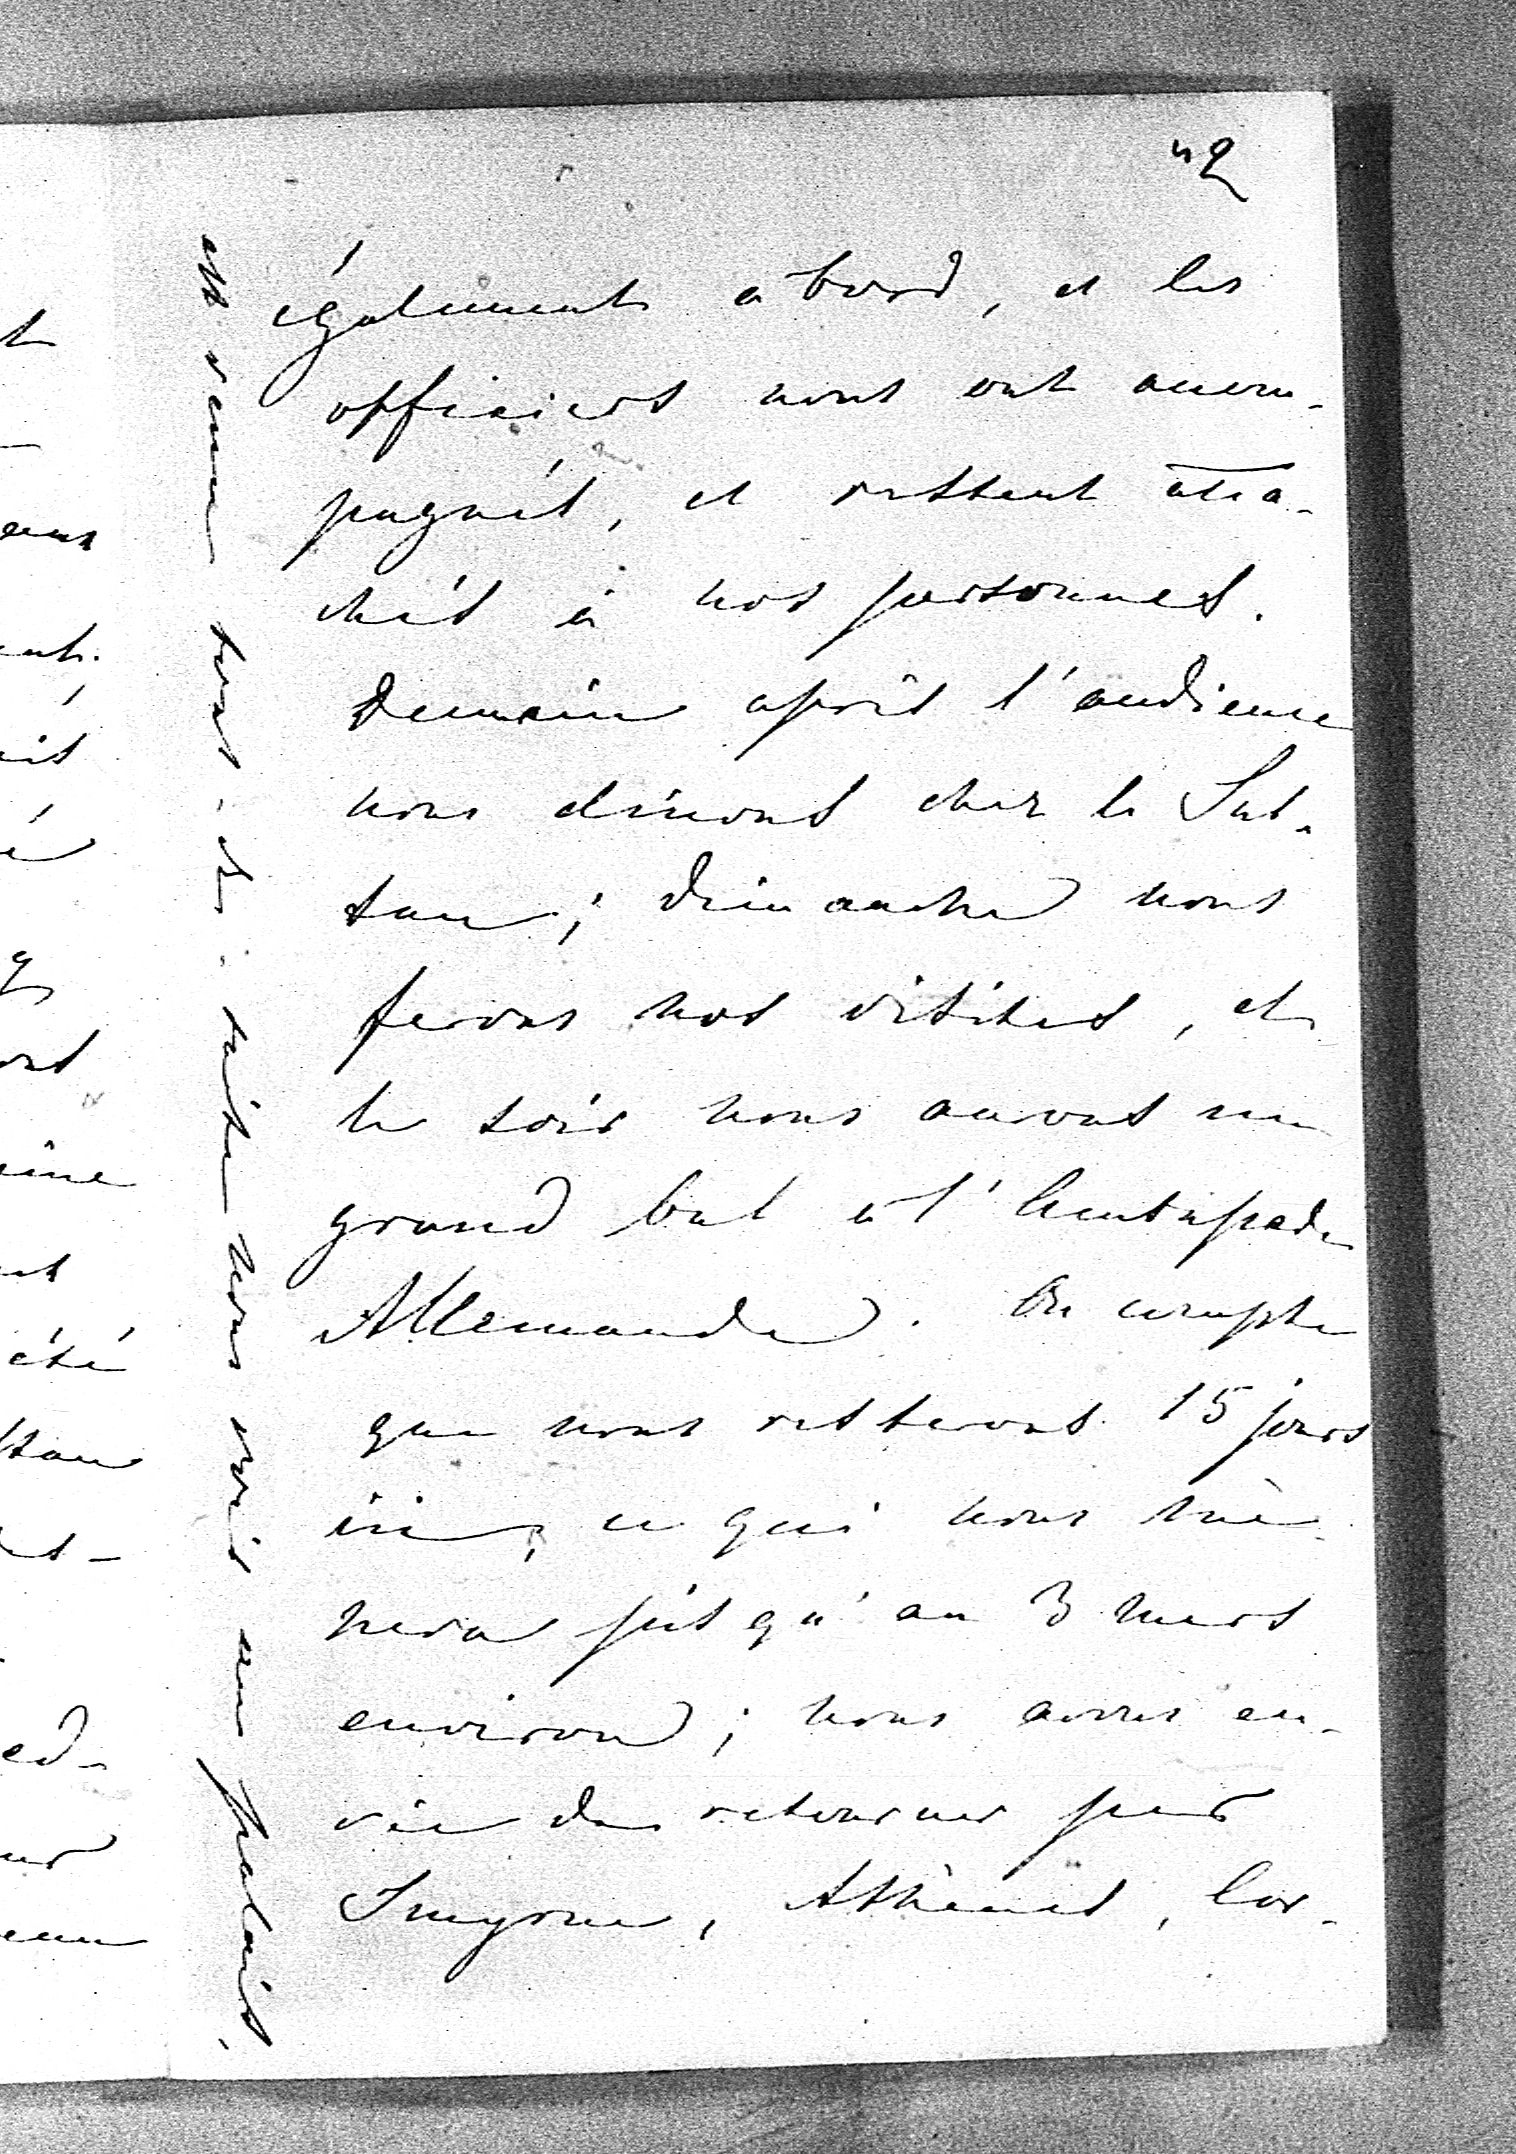 42
également à bord, et les
officiers nous ont accom-
pagnés, et restent atta-
chés à nos personnes.
Demain après l'audience
nous dînons chez le Sul-
tan; dimanche nous
ferons nos visites, et
le soir nous aurons un
grand bal à l'Ambassade
Allemande. On compte
que nous resterons 15 jours
ici, ce qui nous mè-
nera jusqu'au 3 mars
environ; nous avons en-
vie de retourner par
Smyrne, Athènes, Cor-
est venu tout de suite nous voir au palais.